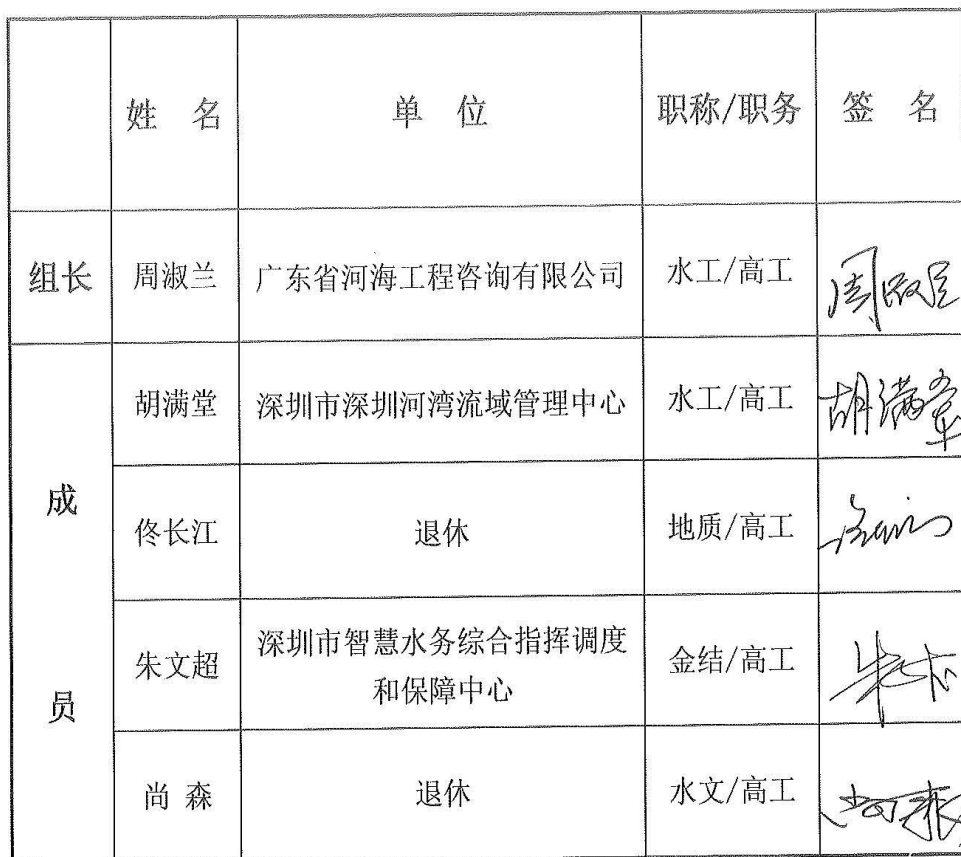 姓 名 单 位 职称/职务 签 名
组长 周淑兰 广东省河海工程咨询有限公司 水工/高工
胡满堂 深圳市深圳河湾流域管理中心 水工/高工 胡满堂
成
佟长江 退休 地质/高工
朱文超 深圳市智慧水务综合指挥调度
和保障中心 金结/高工
员
尚 森 退休 水文/高工 尚森